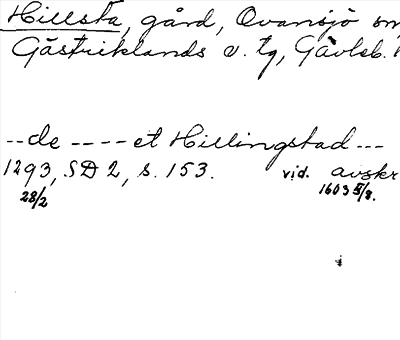 Hillsta, gård, Ovansjö sn
Gästriklands v. tg, Gävleb. l
--de ---- et Hillingstad ---
1293, SD 2, s. 153. vid. avskr
28/2 1603 5/8.